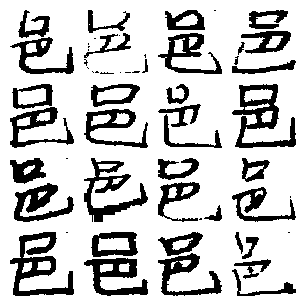 邑邑邑邑
邑邑邑邑
邑邑邑邑
邑邑邑邑